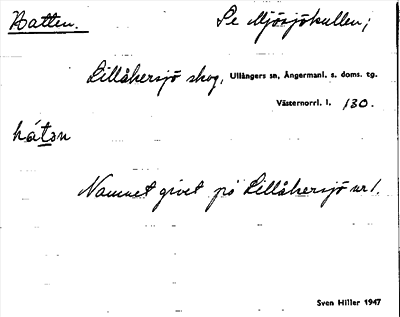 Hatten. Se Mjösjökullen;
Lillåkersjö skog, Ullångers sn, Ångermanl. s. doms. tg.
Västernorrl. l. 130.
hátən
Namnet givet på Lillåkersjö nr 1.
Sven Hiller 1947